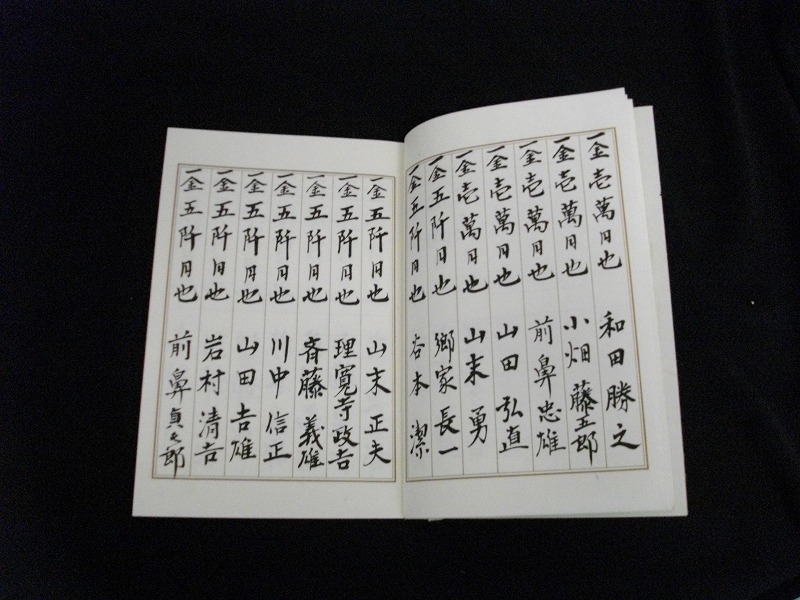 一金壱萬円也 和田勝之
一金壱萬円也 小畑藤五郎
一金壱萬円也 前鼻忠雄
一金壱萬円也 山田弘直
一金壱萬円也 山末勇
一金五阡円也 郷家長一
一金五阡円也 谷本潔
一金五阡円也 山末正夫
一金五阡円也 理寛寺政吉
一金五阡円也 斉藤義雄
一金五阡円也 川中信正
一金五阡円也 山田吉雄
一金五阡円也 岩村清吉
一金五阡円也 前鼻貞之郎